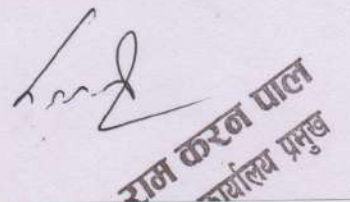 राम करन पाल
कार्यालय प्रमुख